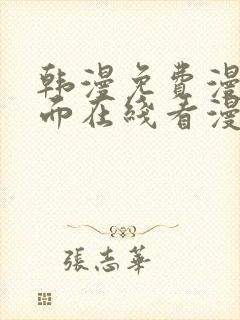 韩漫免费漫
而在线看漫
張志華